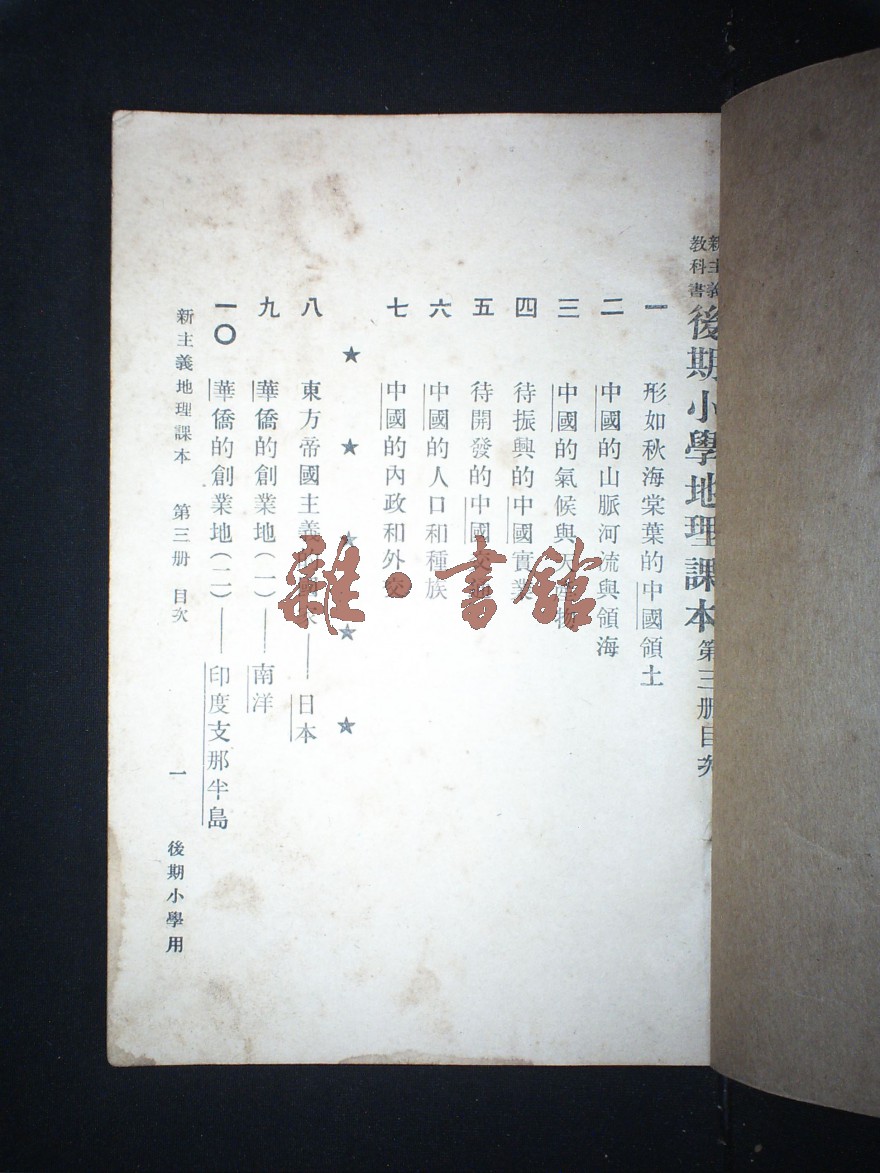 新主義
教科書
後期小學地理課本第三册目次
一 形如秋海棠葉的中國領土
二 中國的山脈河流與領海
三 中國的氣候與天產物
四 待振興的中國實業
五 待開發的中國交通
六 中國的人口和種族
七 中國的內政和外交
★ ★ ★ ★ ★
八 東方帝國主義的國家——日本
九 華僑的創業地(一)——南洋
一〇 華僑的創業地(二)——印度支那半島
新主義地理課本 第三册 目次 一 後期小學用
雜·書館